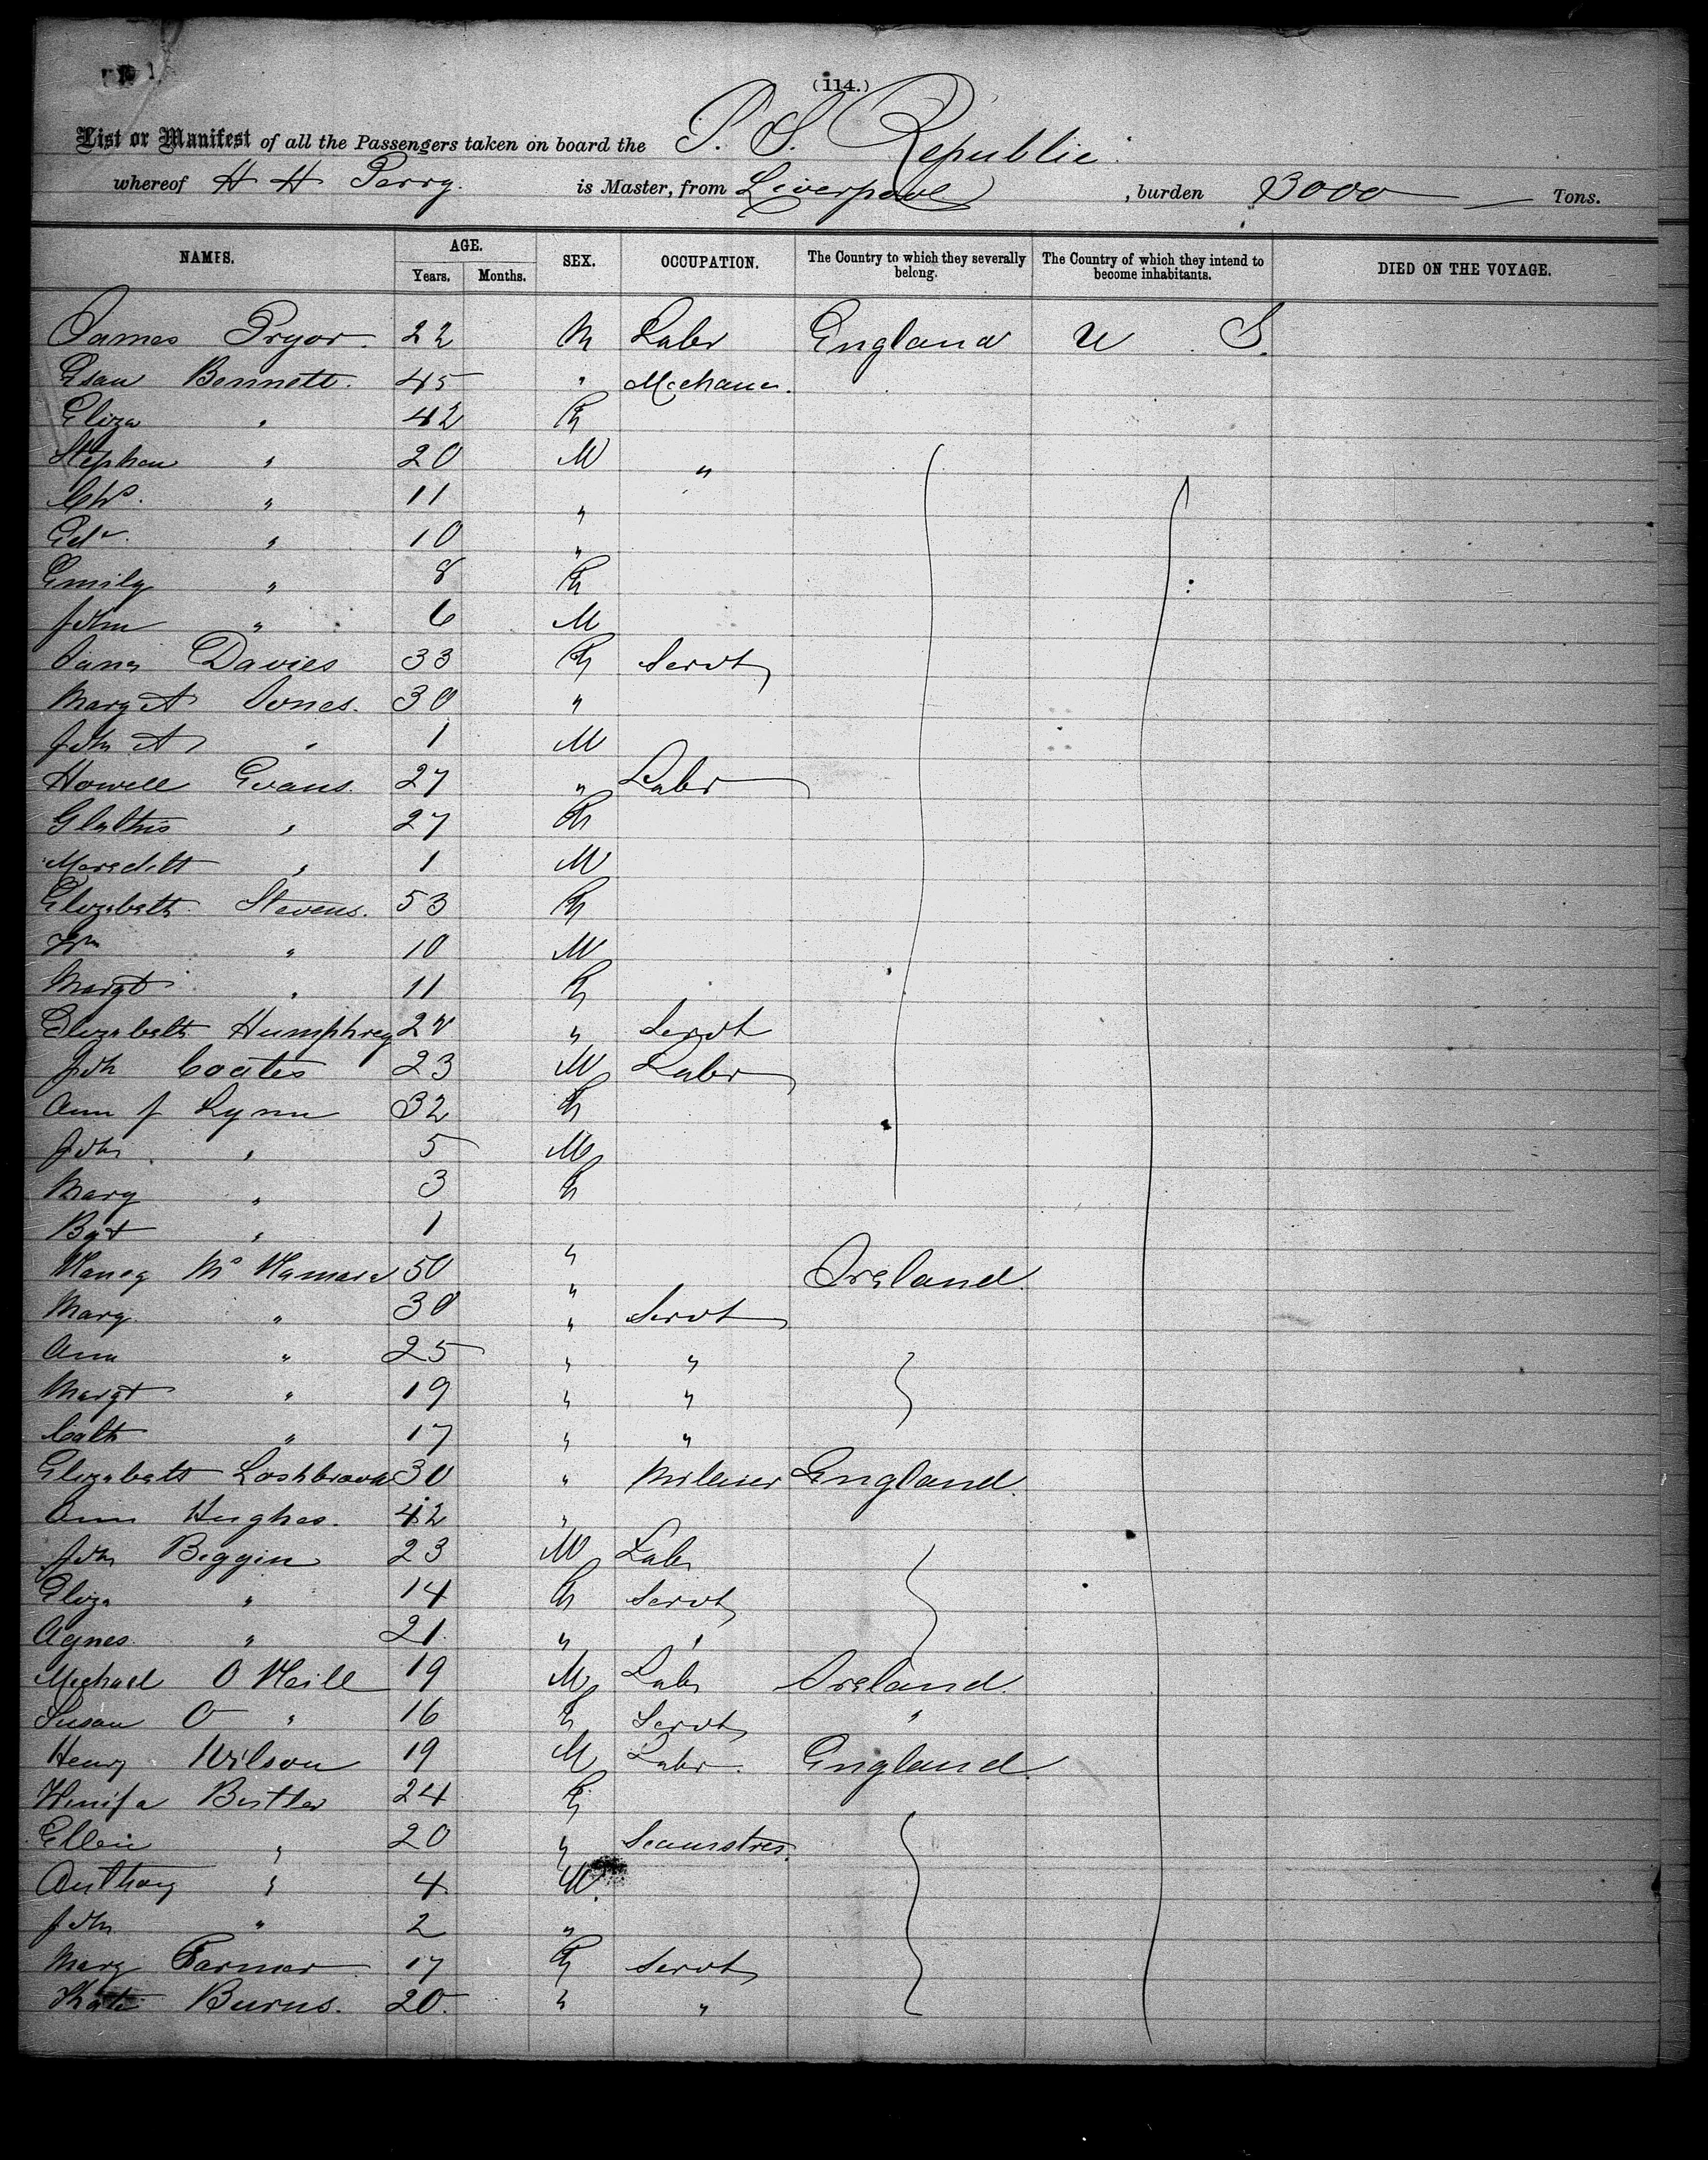 (114.)
List or Manifest of all the Passengers taken on board the S. S. Republic
whereof H H Perry is Master, from Liverpool, burden 3000 Tons.
NAMES. AGE. SEX. OCCUPATION. The Country to which they severally belong. The Country of which they intend to become inhabitants. DIED ON THE VOYAGE.
Years. Months.
James Pryor. 22 M Labr England U. S.
Esau Bennett. 45 " Mechanic.
Eliza " 42 F
Stephen " 20 M "
Chs. " 11 "
Edw. " 10 "
Emily " 8 F
John " 6 M
Jane Davies 33 F Servt
Mary A Jones. 30 "
John A " 1 M
Howell Evans. 27 " Labr
" 27 F
Meredith " 1 M
Elizabeth Stevens. 53 F
Wm " 10 M
Margt " 11 F
Elizabeth Humphrey " Servt
Jno Coates 23 M Labr
Ann J Lynn 32 F
Jno " 5 M
Mary " 3 F
Bgt " 1 "
Nancy McNamara 50 " Ireland
Mary " 30 " Servt
Ann " 25 " "
Margt " 19 " "
Cath " 17 " "
Elizabeth 30 " Miliner England.
Ann Hughes. 42 "
Jno Biggin 23 M Labr
Eliza " 14 F Servt
Agnes " 21 " "
Michael O Neill 19 M Labr Ireland.
Susan O " 16 F Servt "
Henry Wilson 19 M Labr. England.
Butler 24 F
Ellen " 20 " Seamstres.
Anthony " 4 M.
Jno " 2 "
Mary Farmer 17 F Servt
Kate Burns. 20. " "